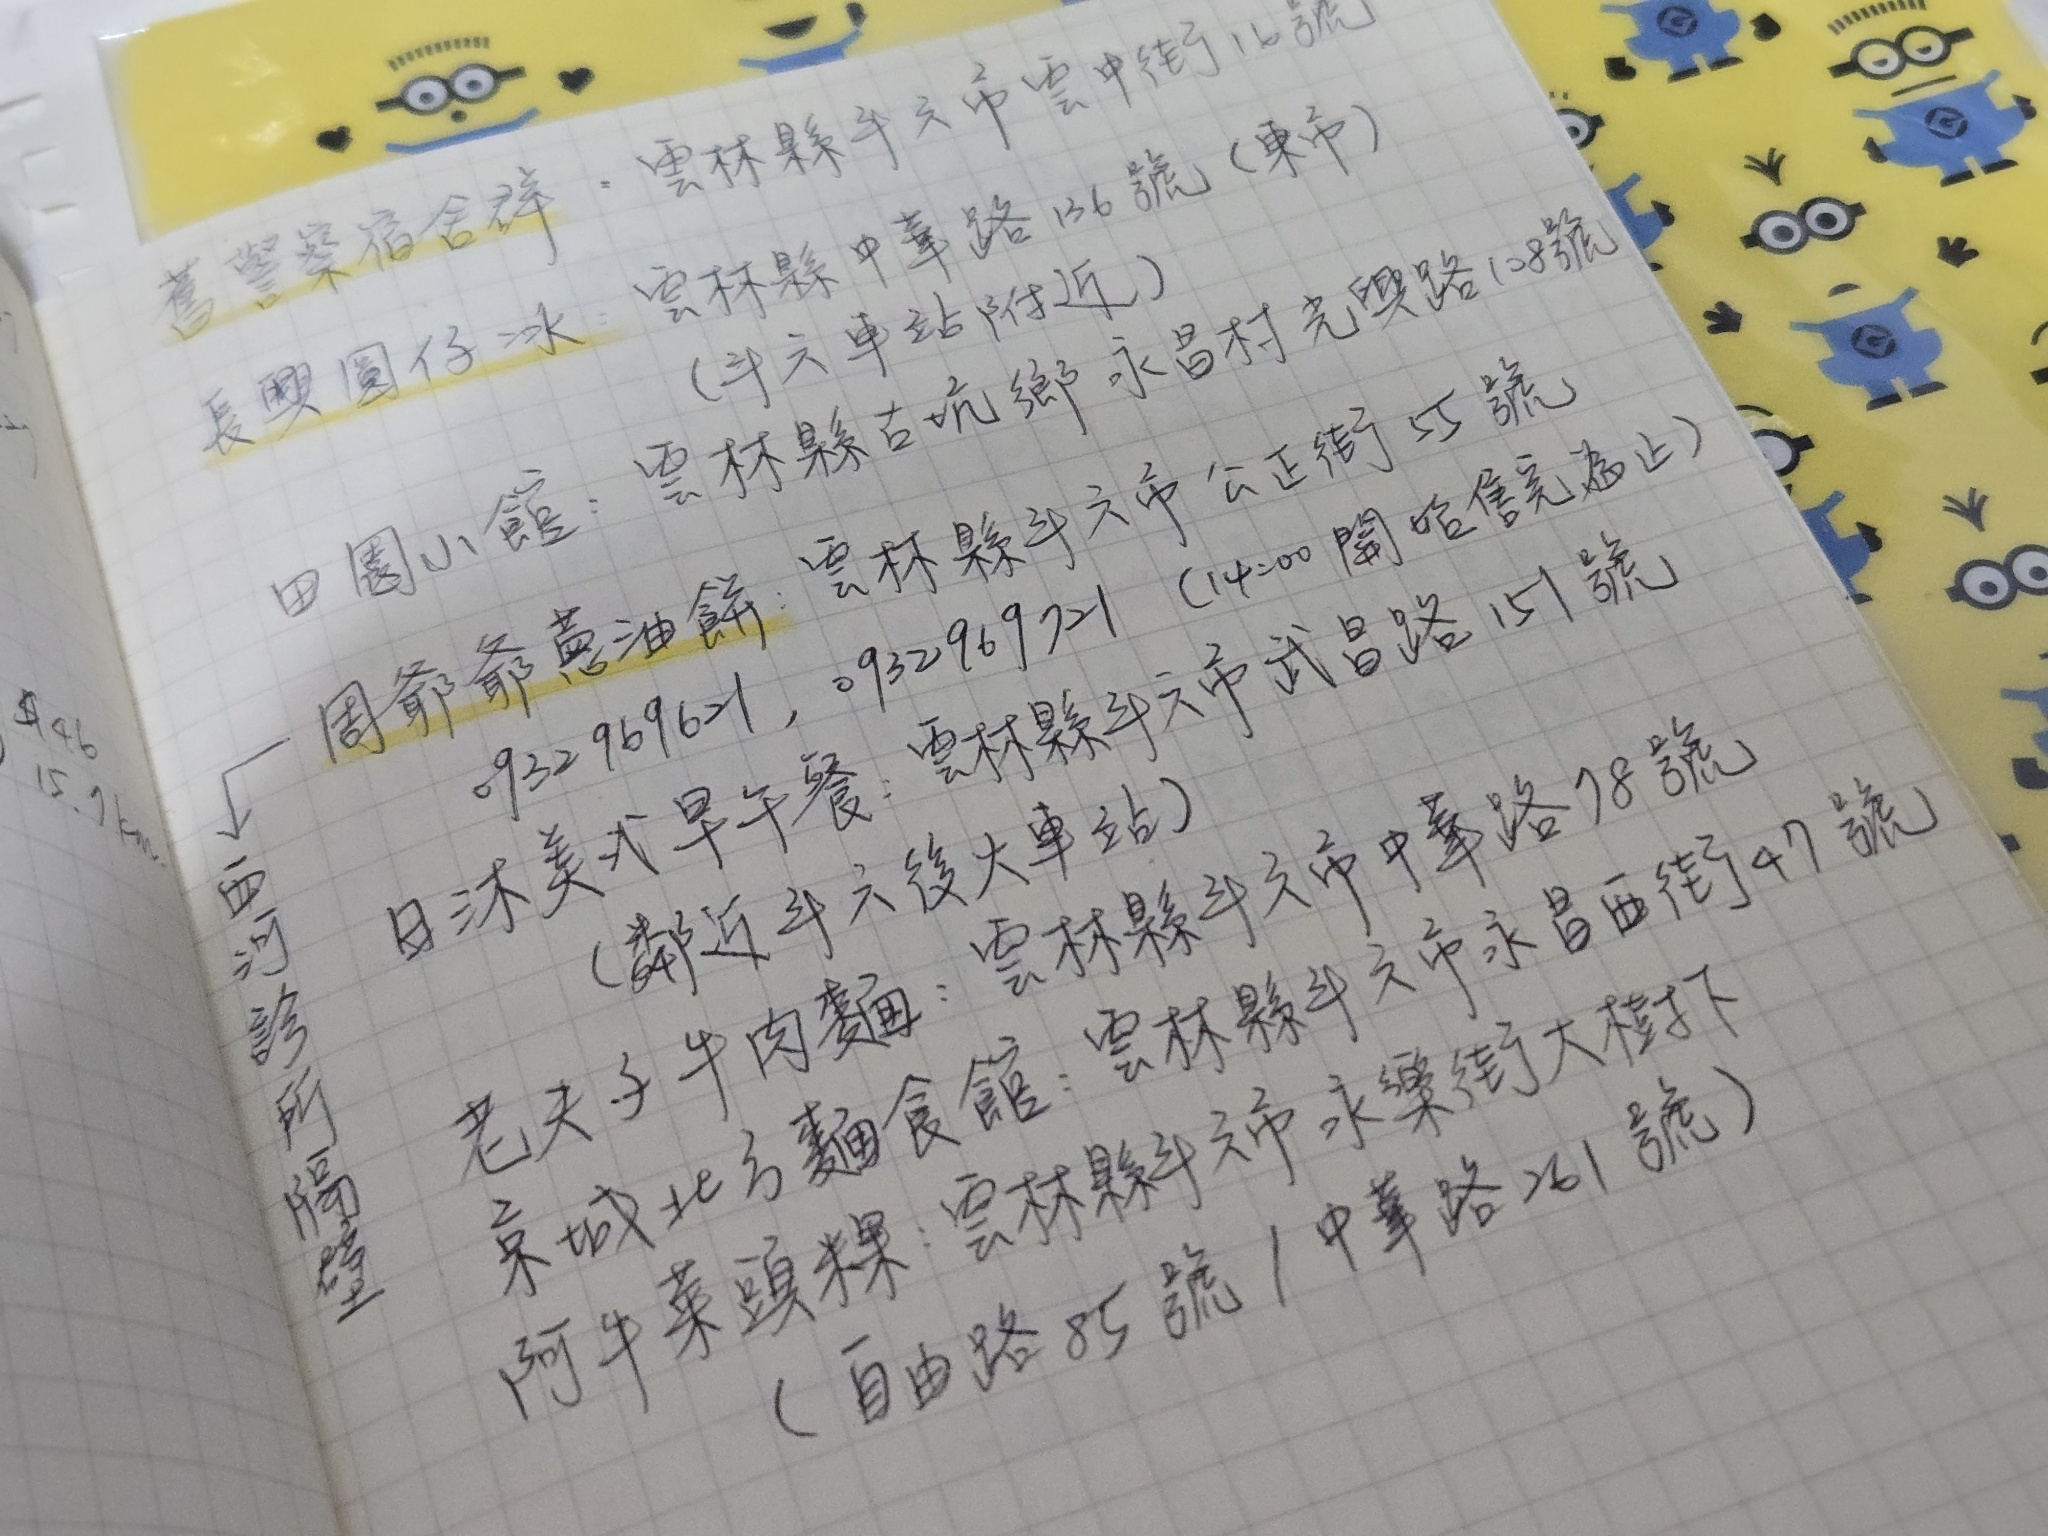 舊警察宿舍群：雲林縣斗六市雲中街16號
長興圓仔冰：雲林縣中華路136號(東市)
(斗六車站附近)
田園小館：雲林縣古坑鄉永昌村光興路128號
周爺爺蔥油餅：雲林縣斗六市公正街55號
0932969621，0932969721 (14:00開始售完為止)
西河診所隔壁
日沐美式早午餐：雲林縣斗六市武昌路151號
(鄰近斗六後火車站)
老夫子牛肉麵：雲林縣斗六市中華路78號
京城北方麵食館：雲林縣斗六市永昌西街47號
阿牛菜頭粿：雲林縣斗六市永樂街大樹下
(自由路85號/中華路261號)
$46
15.7km